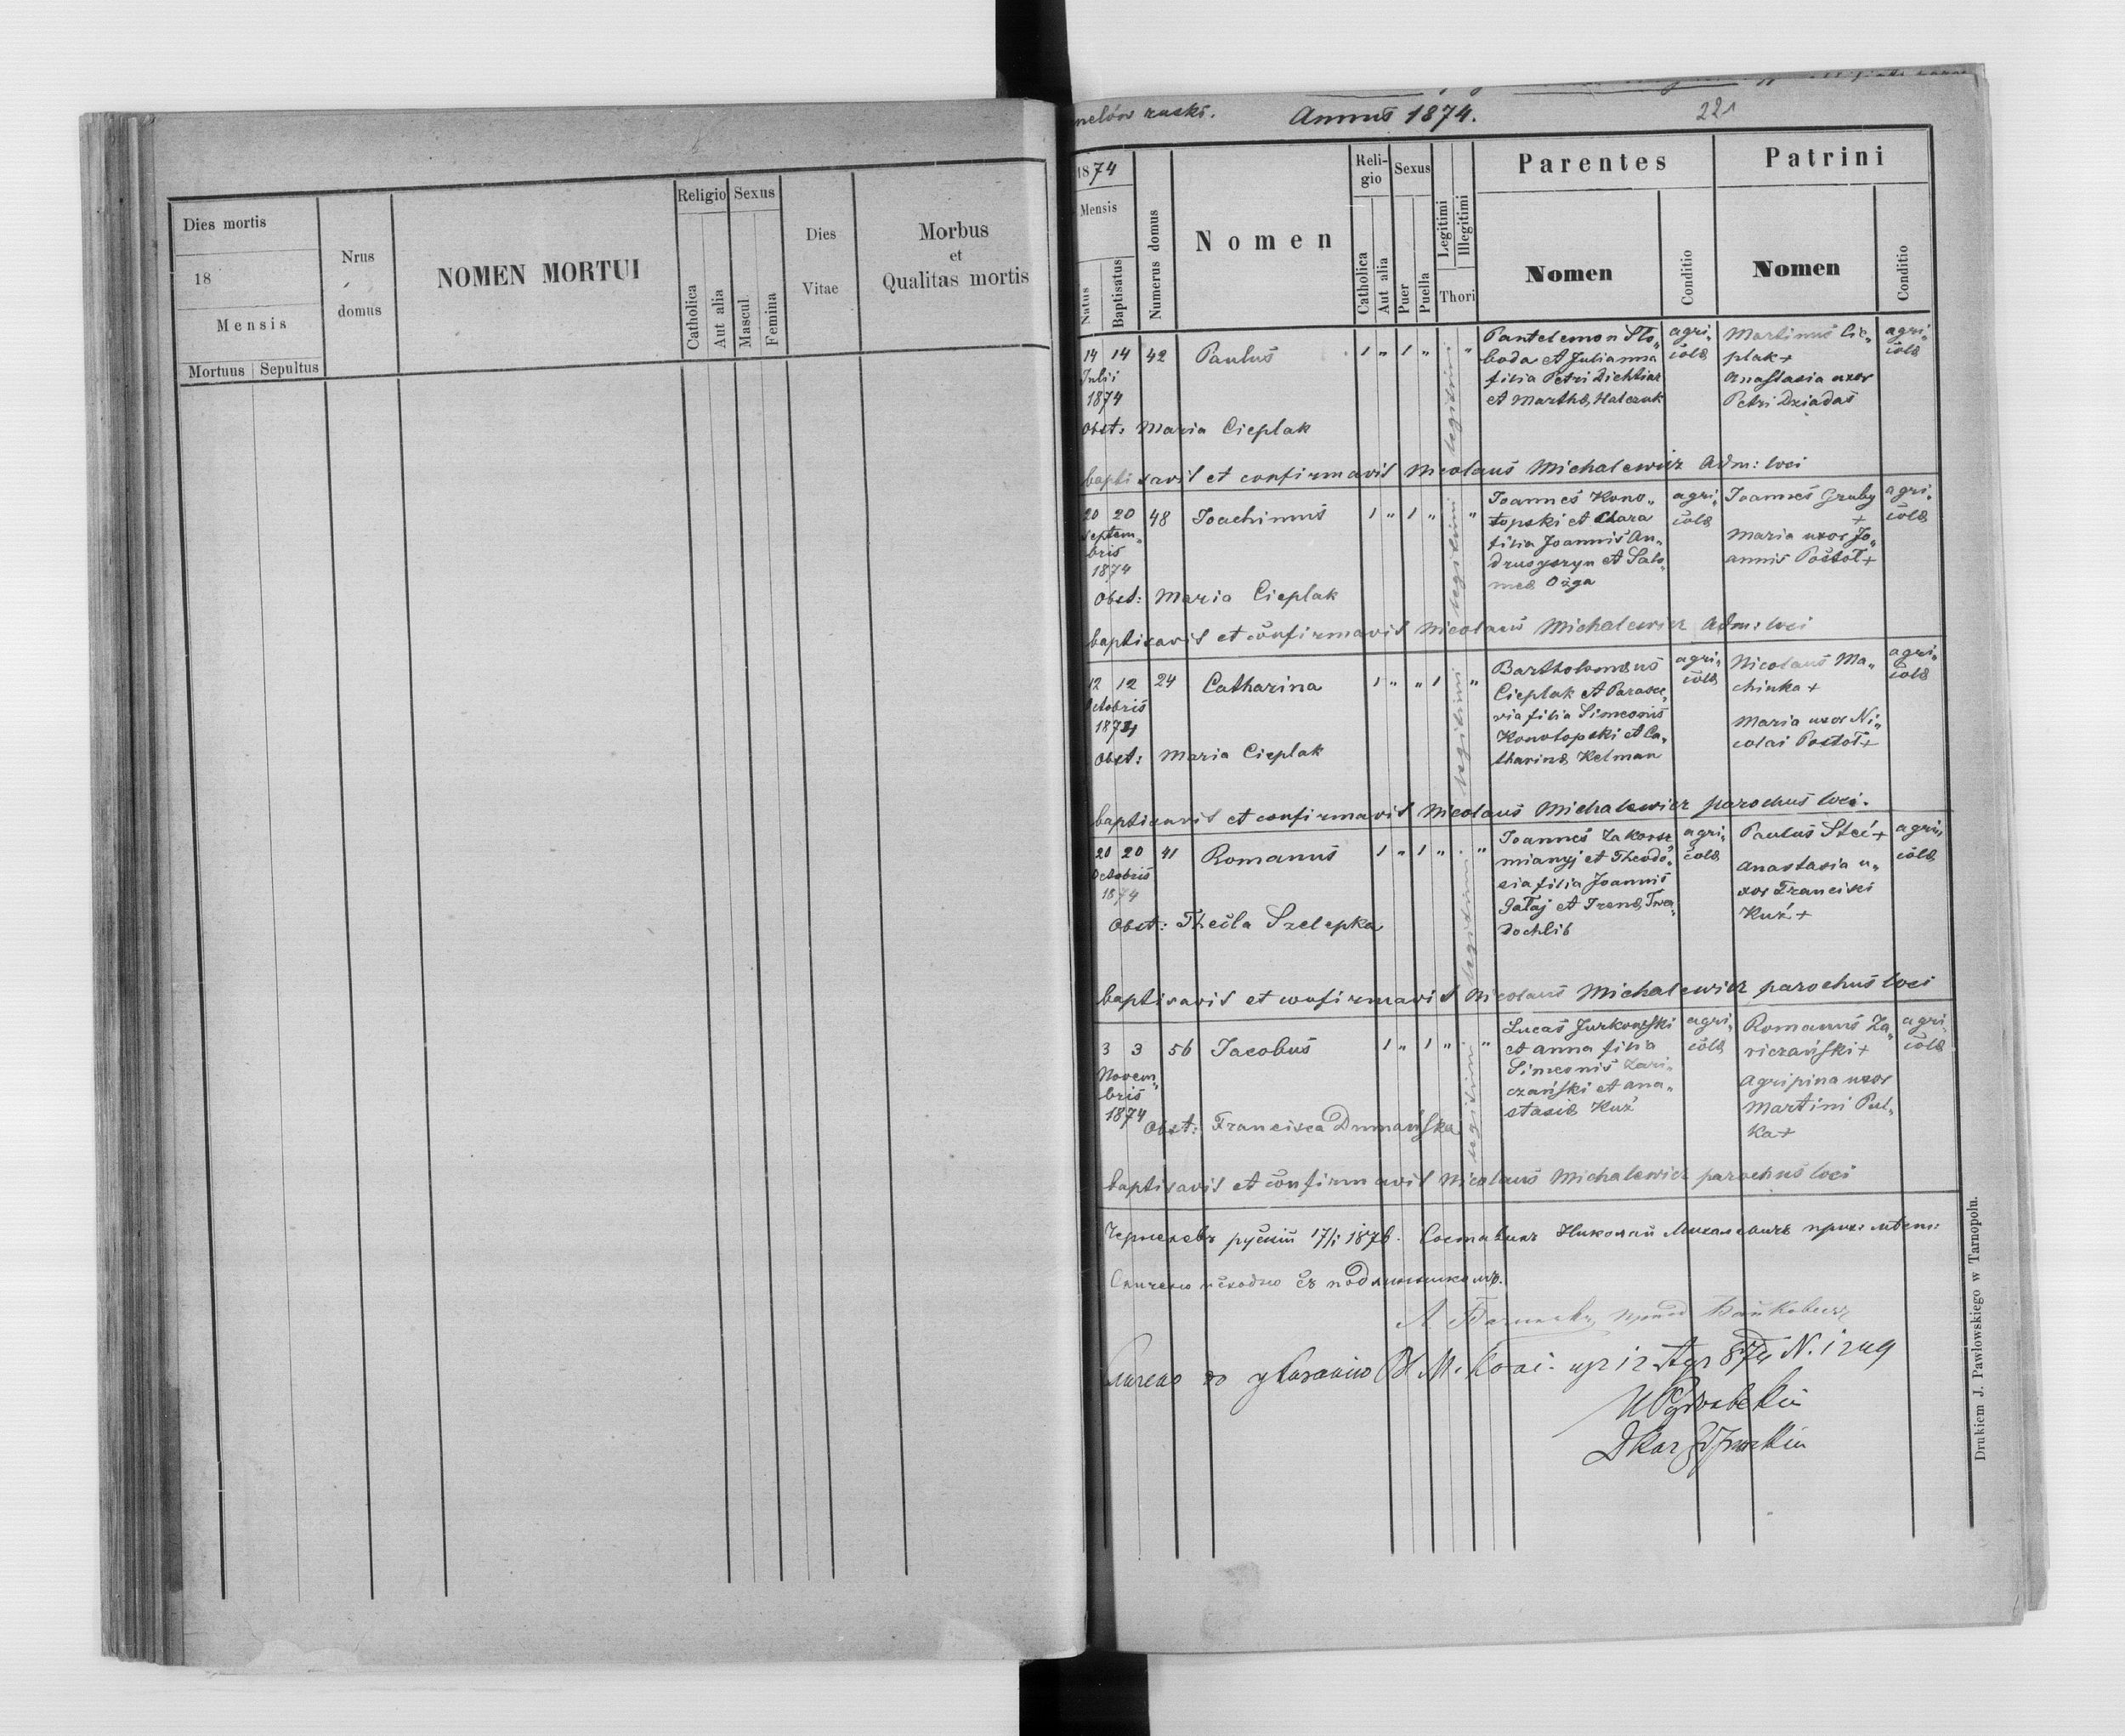 Dies mortis
18
Mensis
Mortuus Sepultus
Nrus
domus
NOMEN MORTUI
Religio Sexus
Catholica
Aut alia
Mascul
Femina
Dies
Vitae
Morbus
et
Qualitas mortis
ruski. Annus 1874. 221
1874
Mensis
Natus
Baptisatus
Numerus domus
Nomen
Reli-
gio
Sexus
Catholica
Aut alia
Puer
Puella
Legitimi
Illegitimi
Thori
Parentes
Nomen
Conditio
Patrini
Nomen
Conditio
14 14 42 Paulus 1 " 1 " legitimi "
Julii
1874
Pantelemon Slo„
boda et Julianna
filia Petri Dichtiar
et Marthae Halczuk
agri„
colae
Martinus Cie„
plak +
Anastasia uxor
Petri Dziadas
agri„
colae
Obst: Maria Cieplak
baptisavit et confirmavit Nicolaus Michalewicz Adm: loci
20 20 48 Joachimus 1 " 1 " legitimi "
Septem„
bris
1874
Joannes Kono„
topski et Clara
filia Joannis An„
et Salo„
meae Ożga
agri„
colae
Joannes Gruby
+
Maria uxor Jo„
annis Postoł +
agri„
colae
Obst: Maria Cieplak
baptisavit et confirmavit Nicolaus Michalewicz Adm: loci
12 12 24 Catharina 1 " " 1 legitimi "
Octobris
1874
Bartholomaeus
Cieplak et Parasce„
via filia Simeonis
Konotopski et Ca„
tharinae Kelman
agri„
colae
Nicolaus Ma„
chinka +
Maria uxor Ni„
colai Postoł +
agri„
colae
Obst: Maria Cieplak
baptisavit et confirmavit Nicolaus Michalewicz parochus loci.
20 20 41 Romanus 1 " 1 " legitimi "
Octobris
1874
Joannes
et Theodo„
sia filia Joannis
Gałaj et Irenae Twar„
dochlib
agri„
colae
Paulus Steć +
Anastasia u„
xor Francisci
Kuź +
agri„
colae
Obst: Thecla Szelepka
baptisavit et confirmavit Nicolaus Michalewicz parochus loci
3 3 56 Jacobus 1 " 1 " legitimi "
Novem„
bris
1874
Lucas Jurkowski
et Anna filia
Simeonis Zari„
czański et Ana„
stasiae Kuź
agri„
colae
Romanus Za„
riczański +
Agripina uxor
Martini Pul„
ka +
agri„
colae
Obst: Francisca Dumańska
baptisavit et confirmavit Nicolaus Michalewicz parochus loci
рускій 17/1 1876. Николай Михалевичъ
Drukiem J. Pawłowskiego w Tarnopolu.